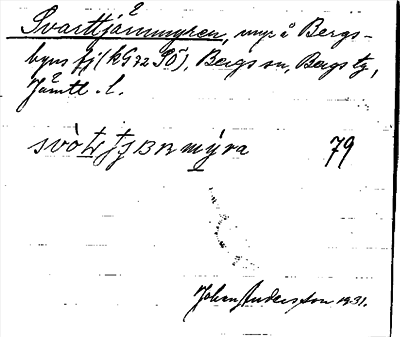 Svarttjärnmyren, myr å Bergs-
byns fj (KG 22 SÖ), Bergs sn, Bergs tg,
Jämtl. l.
79
Johan Andersson 1931.